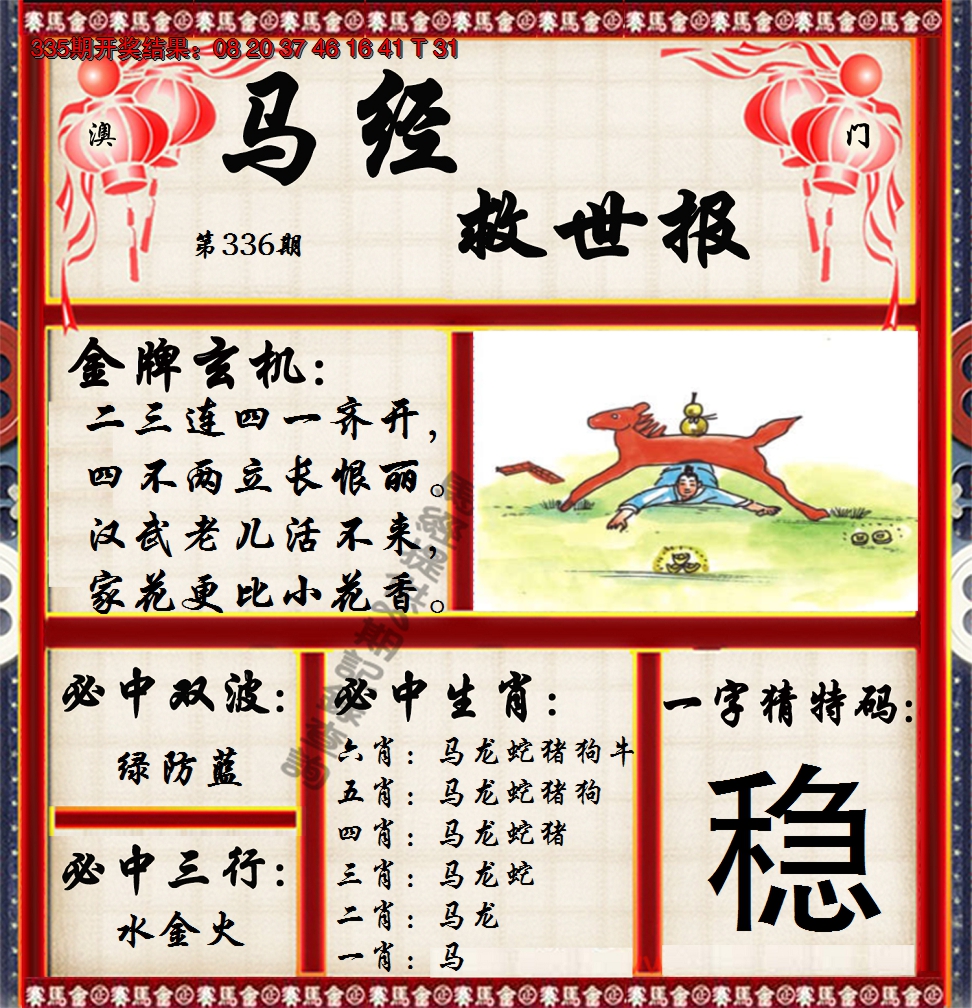 335期开奖结果：08 20 37 46 16 41 T 31
澳 门
马经
救世报
第336期
金牌玄机：
二三连四一齐开，
四不两立长恨丽。
汉武老儿活不来，
家花更比小花香。
必中双波：
绿防蓝
必中三行：
水金火
必中生肖：
六肖：马龙蛇猪狗牛
五肖：马龙蛇猪狗
四肖：马龙蛇猪
三肖：马龙蛇
二肖：马龙
一肖：马
一字猜特码：
稳